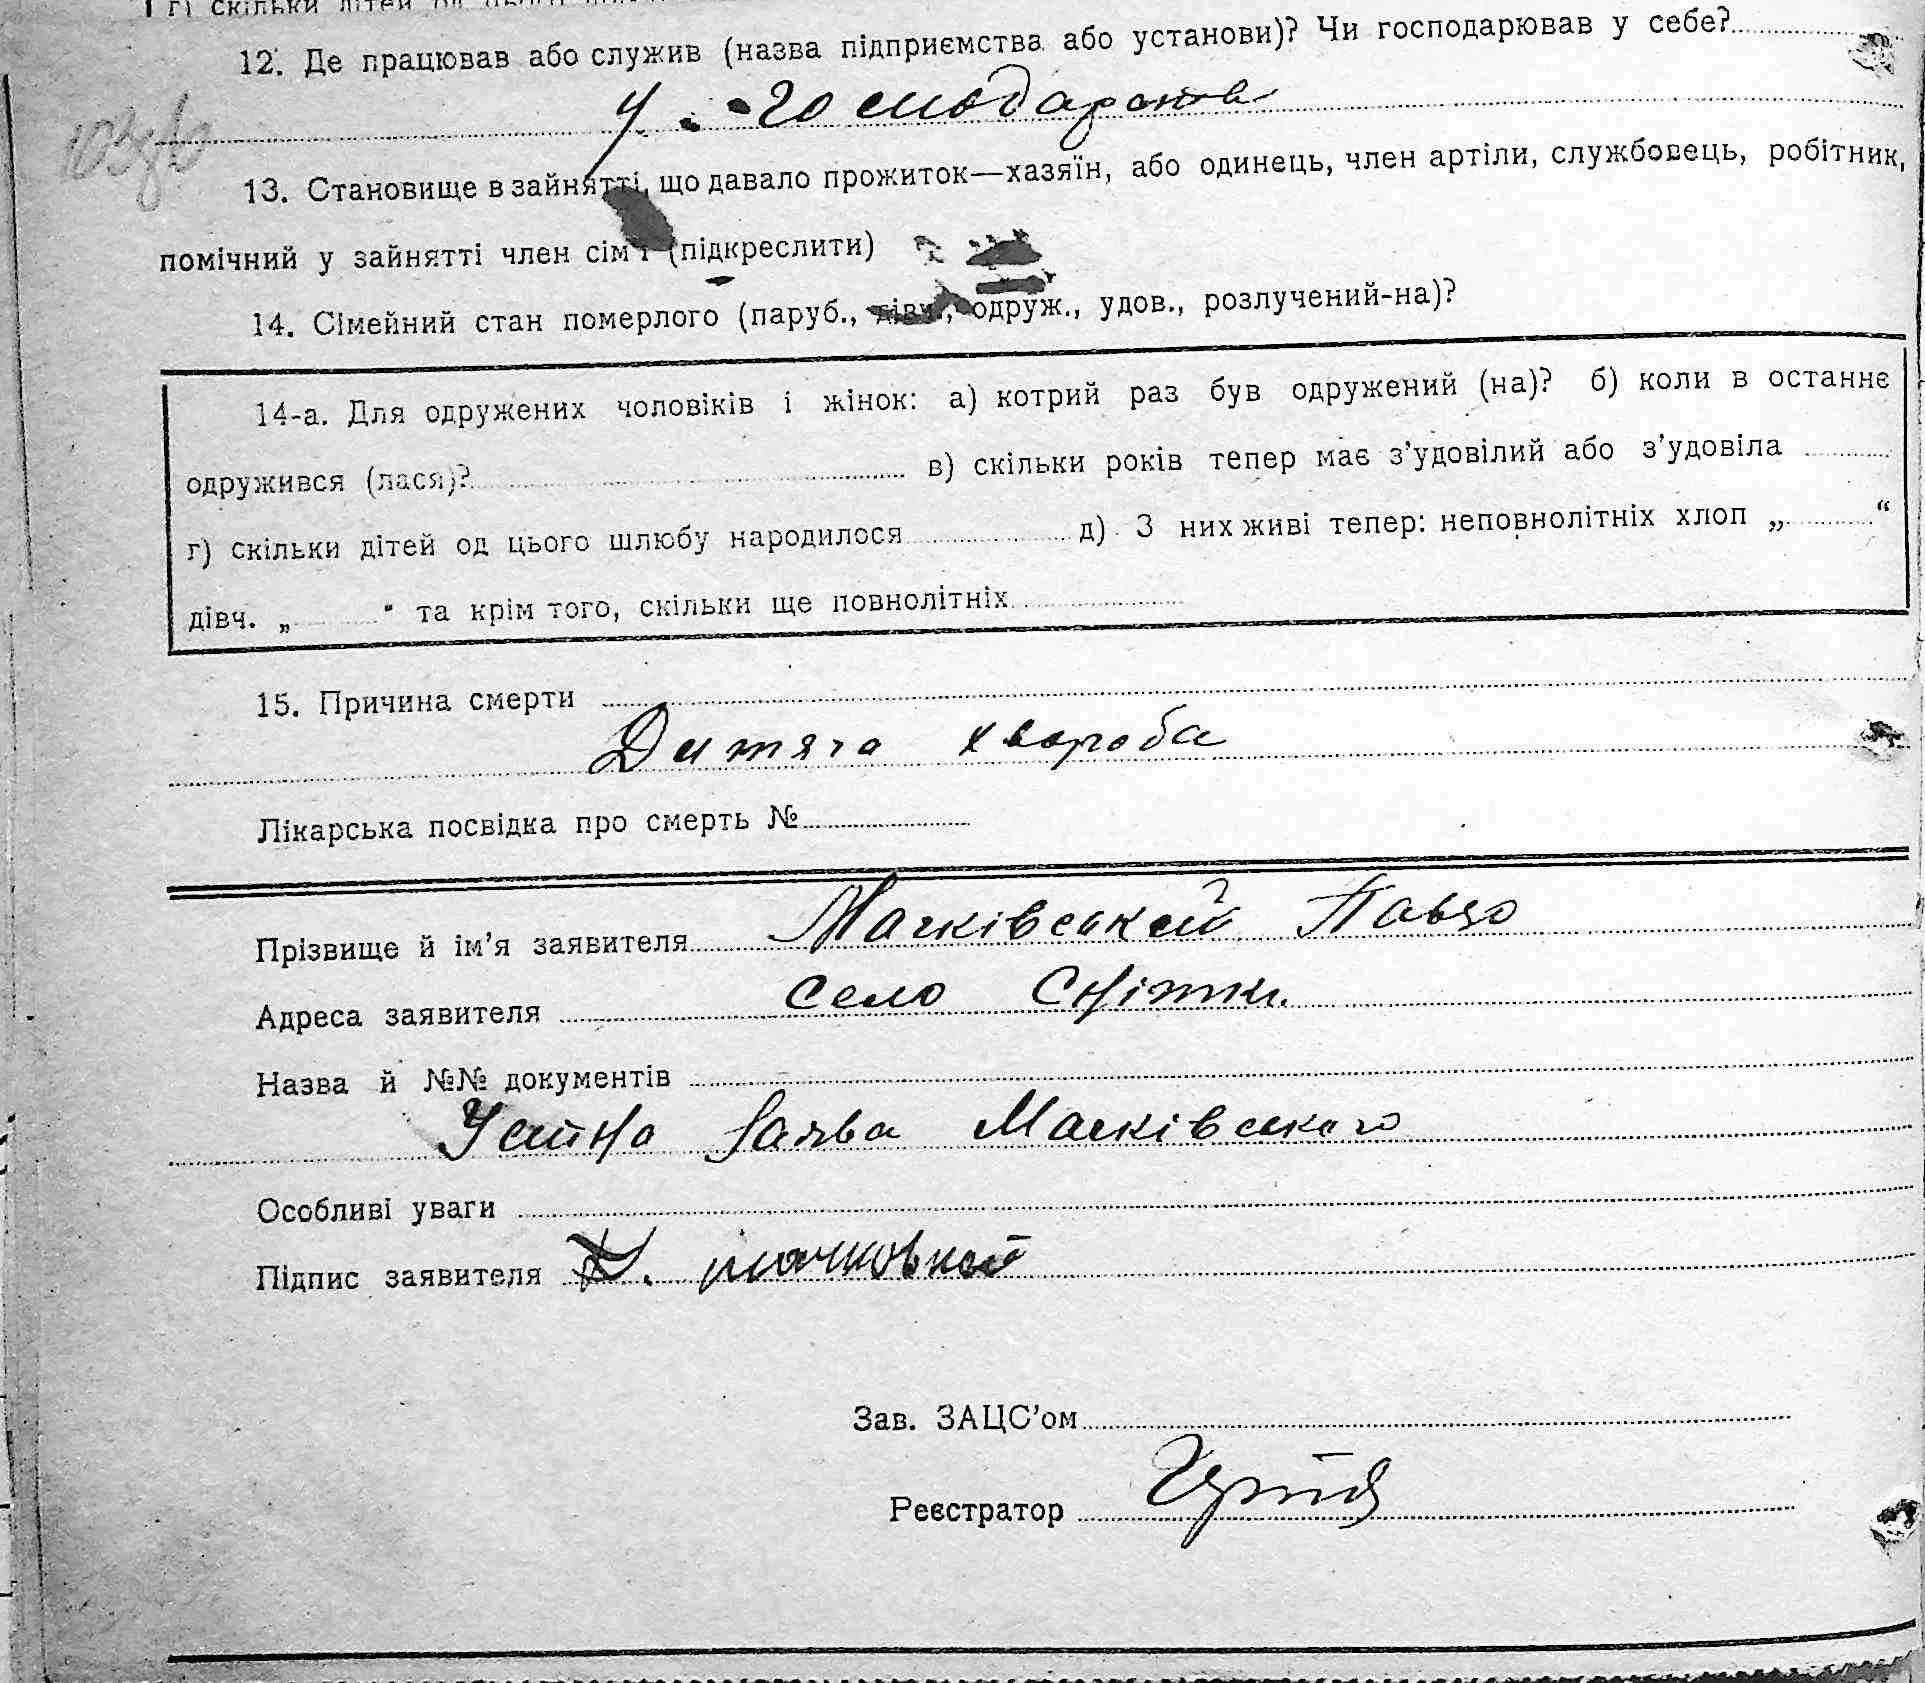 г) скільки дітей од цього
12. Де працював або служив (назва підприємства або установи)? Чи господарював у себе?
у господарстві
13. Становище в зайнятті, що давало прожиток—хазяїн, або одинець, член артіли, службовець, робітник,
помічний у зайнятті член сім'ї (підкреслити)
14. Сімейний стан померлого (паруб., дівч., одруж., удов., розлучений-на)?
14-а. Для одружених чоловіків і жінок: а) котрий раз був одружений (на)? б) коли в останнє
одружився (лася)? в) скільки років тепер має з'удовілий або з'удовіла
г) скільки дітей од цього шлюбу народилося д) З них живі тепер: неповнолітніх хлоп „ “
дівч. „ “ та крім того, скільки ще повнолітніх
15. Причина смерти
Дитяча хвороба
Лікарська посвідка про смерть №
Прізвище й ім'я заявителя Мачківський Павло
Адреса заявителя село Снітки.
Назва й №№ документів
Устна заява Мачківського
Особливі уваги
Підпис заявителя мачковский
Зав. ЗАЦС'ом
Реєстратор